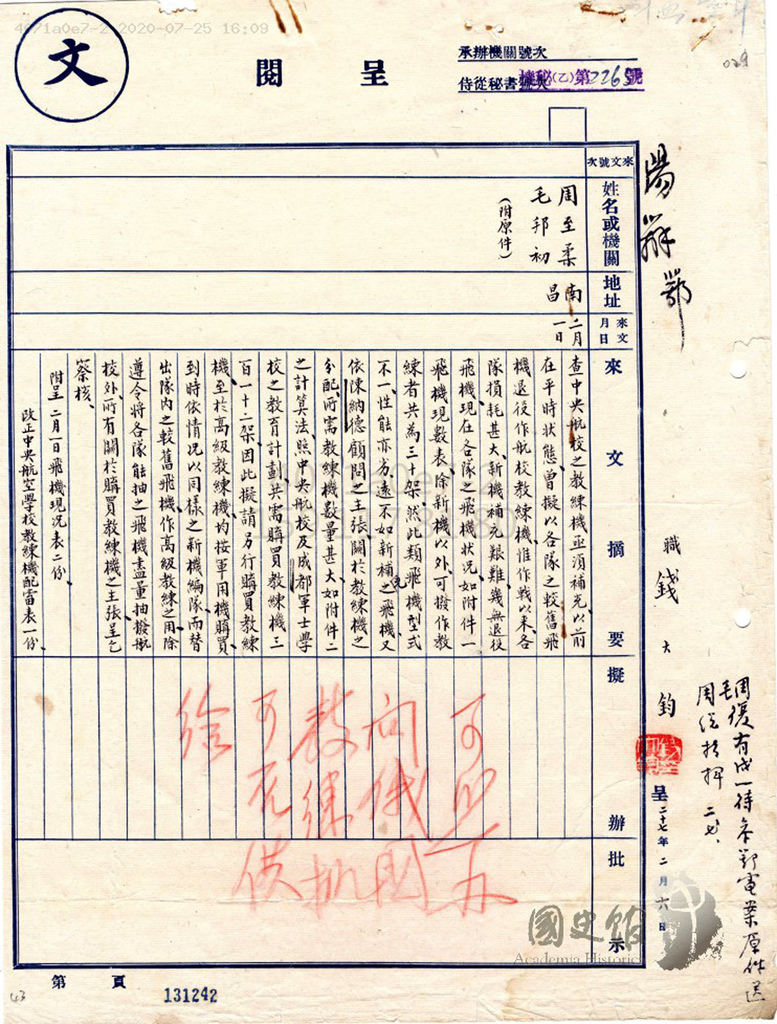 4671a0e7-2 2020-07-25 16:09
文
呈閱
承辦機關號次
侍從秘書號次
機秘(乙)第2265號
029
陽辦鄂
來文號次
姓名或機關
周至柔
毛邦初
(附原件)
地址
南昌
來文月日
二月一日
來文摘要
查中央航校之教練機亟須補充、以前
在平時狀態、曾擬以各隊之較舊飛
機退後作航校教練機、惟作戰以來、各
隊損耗甚大、新機補充艱難、幾無退後
飛機、現在各隊之飛機狀況、如附件一
飛機現數表、除新機以外、可撥作教
練者共為三十架、然此類飛機、型式
不一、性能亦方遠不如新補之飛機、又
依陳納德顧問之主張、關於教練機之
分配、所需教練機數量甚大、如附件二
之計算法、照中央航校及成都軍士學
校之教育計劃、共需購買教練機三
百一十二架、因此擬請另行購買教練
機、至於高級教練機、均按軍用機購買、
到時依情況以同樣之新機編隊、而替
出隊內之較舊飛機、作高級教練之用、除
遵令將各隊能抽之飛機盡量抽撥航
校外、所有關於購買教練機之主張、呈乞
察核、
附呈 二月一日飛機現況表二份、
改正中央航空學校教練機配當表一份、
擬辦
批示
可以一方
向俄國
教練機
可先供
給
職 錢大鈞
呈 二十七年二月六日
周復有成一待余鄂電業原件送
毛
周從指揮 二七、
第 頁
131242
43
國史館
Academia Historica